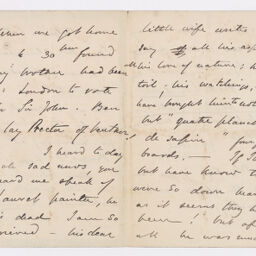 when we got home
6 30 found
my brother had been
London to vote
Sir John. Ben
lay Rector of
I heard to day
sad news, you
heard me speak of
Laurel painter, he
is dead I am so
grieved — his dear
little wife writes
say all his
his love of nature; h
toil; his watchings,
have brought him to
but "quatre planch
de sapin" four
boards. —
but have know t
were so down hear
as it seems they h
been! but af
all he was muc